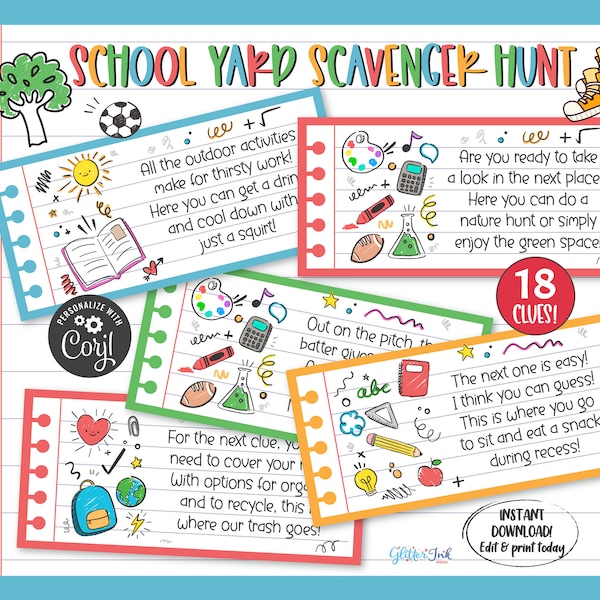 SCHOOL YARD SCAVENGER HUNT
All the outdoor activities
make for thirsty work!
Here you can get a drin
and cool down with
just a squirt!
Are you ready to take
a look in the next place
Here you can do a
nature hunt or simply
enjoy the green space
18
CLUES!
PERSONALIZE WITH
Corjl
Out on the pitch, th
batter gives
The next one is easy!
I think you can guess!
This is where you go
to sit and eat a snack
during recess!
abc
For the next clue, yo
need to cover your n
With options for orga
and to recycle, this i
where our trash goes!
INSTANT
DOWNLOAD!
Edit & print today
Glitter Ink